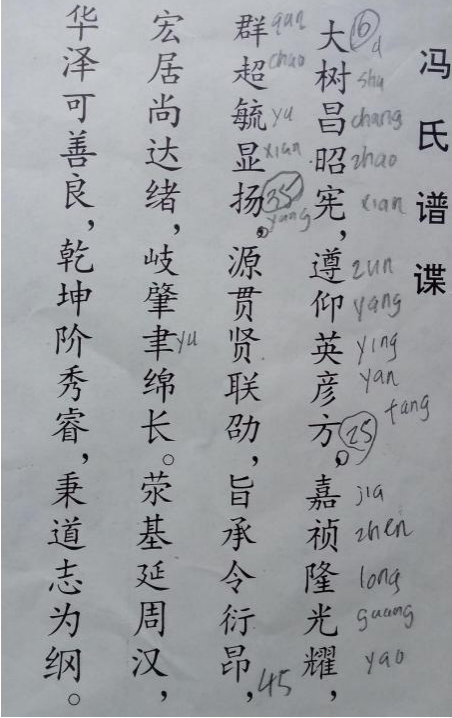 冯氏谱谍
大树昌昭宪，遵仰英彦方。嘉祯隆光耀，
shu
chang
zhao
xian
zun
yang
ying
yan
tang
25
jia
zhen
long
guang
yao
群超毓显扬。源贯贤联劭，旨承令衍昂，
qun
chao
yu
xian
35
yang
45
宏居尚达绪，岐肇聿绵长。荥基延周汉，
yu
华泽可善良，乾坤阶秀睿，秉道志为纲。